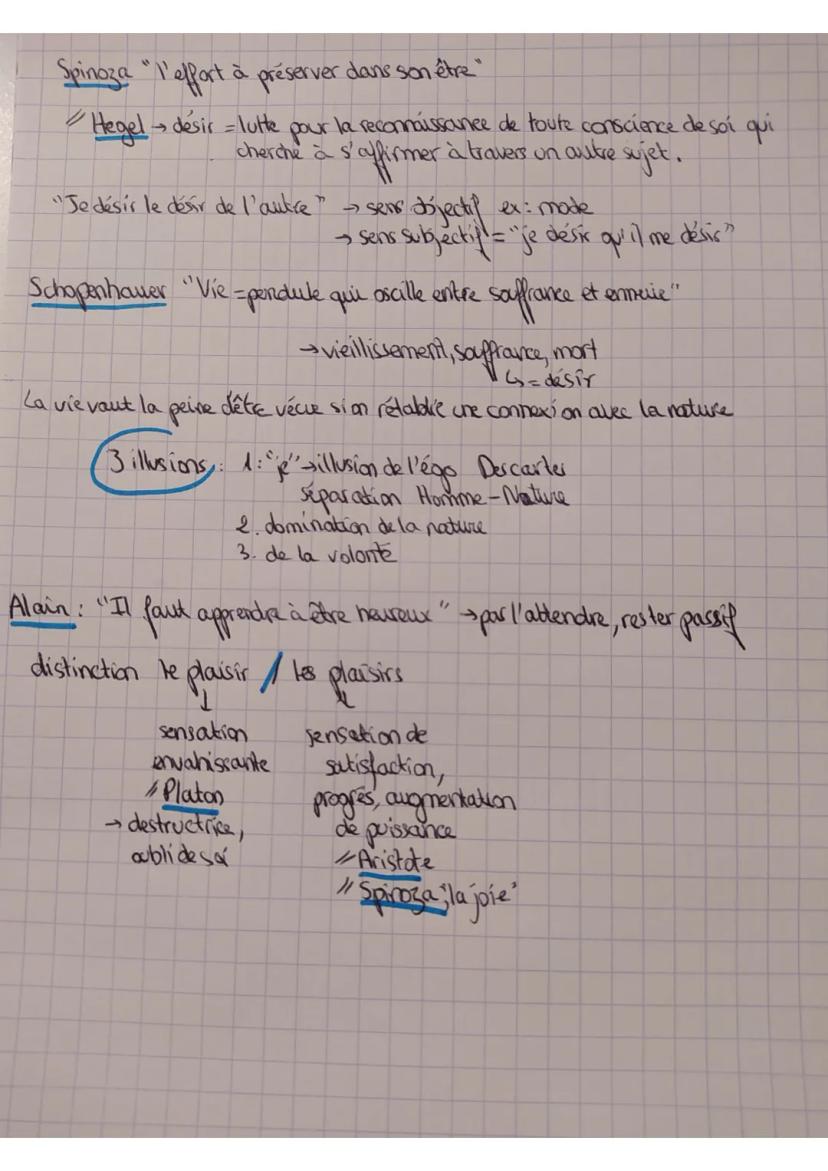 Spinoza "l'effort à préserver dans son être"
// Hegel → désir = lutte pour la reconnaissance de toute conscience de soi qui
cherche à s'affirmer à travers un autre sujet.
"Je désir le désir de l'autre" → sens objectif ex: mode
→ sens subjectif = "je désir qu'il me désir"
Schopenhauer "Vie = pendule qui oscille entre souffrance et ennuie"
→ vieillissement, souffrance, mort
↳ = désir
La vie vaut la peine d'être vécue si on rétablie une connexion avec la nature
3 illusions: 1: "je" → illusion de l'égo Descartes
séparation Homme - Nature
2. domination de la nature
3. de la volonté
Alain: "Il faut apprendre à être heureux" → pas l'attendre, rester passif
distinction le plaisir // les plaisirs
↓ ↓
sensation sensation de
envahissante satisfaction,
// Platon progrès, augmentation
→ destructrice, de puissance
oubli de soi // Aristote
// Spinoza "la joie"